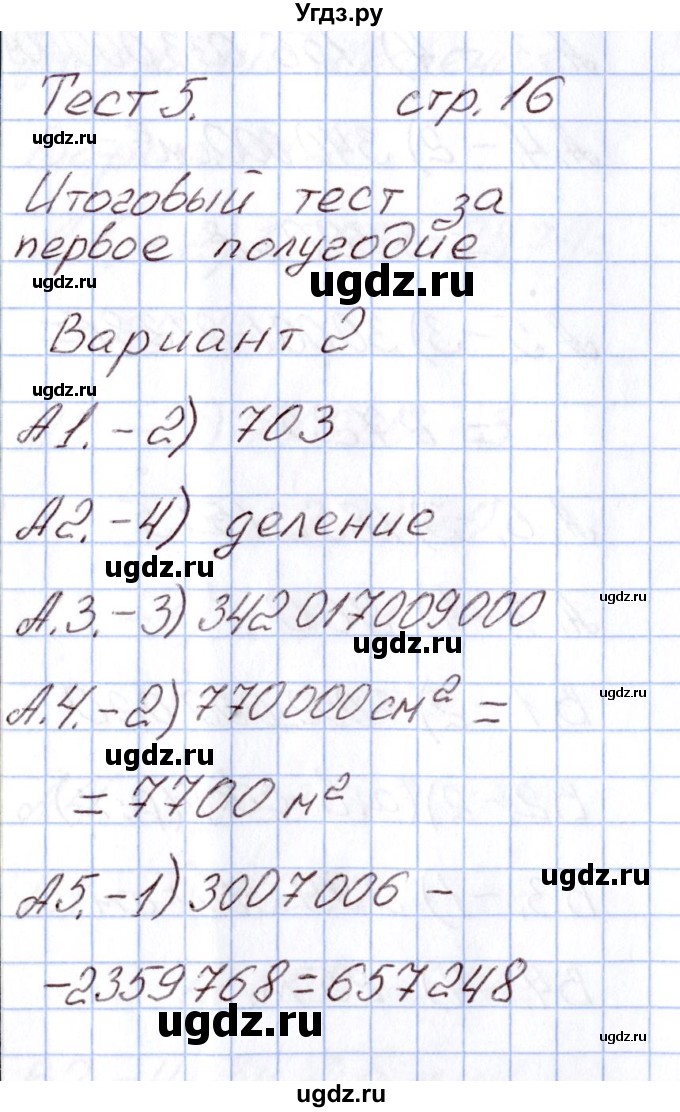 Угдз.ру
Тест 5. стр. 16
ugdz.ru
Итоговый тест за
первое полугодие
ugdz.ru ugdz.ru
Вариант 2
ugdz.ru
А1. - 2) 703
А2. - 4) деление
ugdz.ru
А.3. - 3) 342 017009000
ugdz.ru
ugdz.ru
А.4. - 2) 770000 см² =
ugdz.ru
ugdz.ru
= 7700 м²
А5. - 1) 3007006 -
ugdz.ru
- 2359768 = 657248
ugdz.ru
ugdz.ru
ugdz.ru